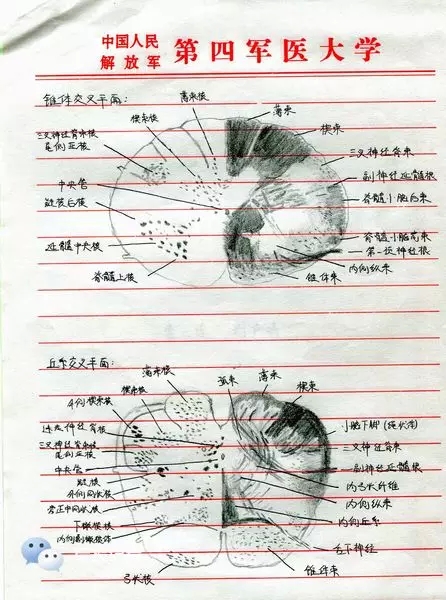 中国人民
解放军
第四军医大学
锥体交叉平面:
薄束核
楔束核
三叉神经脊束核
尾侧亚核
中央管
疑核后核
延髓中央核
脊髓上核
薄束
楔束
三叉神经脊束
副神经延髓根
脊髓小脑后束
脊髓小脑前束
第一颈神经根
内侧纵束
锥体束
丘系交叉平面:
薄束核
楔束核
外侧楔束核
三叉神经脊束核
尾侧亚核
中央管
疑核
外侧网状核
旁正中网状核
下橄榄核
内侧副橄榄核
弓状核
孤束
薄束
楔束
小脑下脚(绳状体)
三叉神经脊束
副神经延髓根
内弓状纤维
内侧纵束
内侧丘系
舌下神经
锥体束